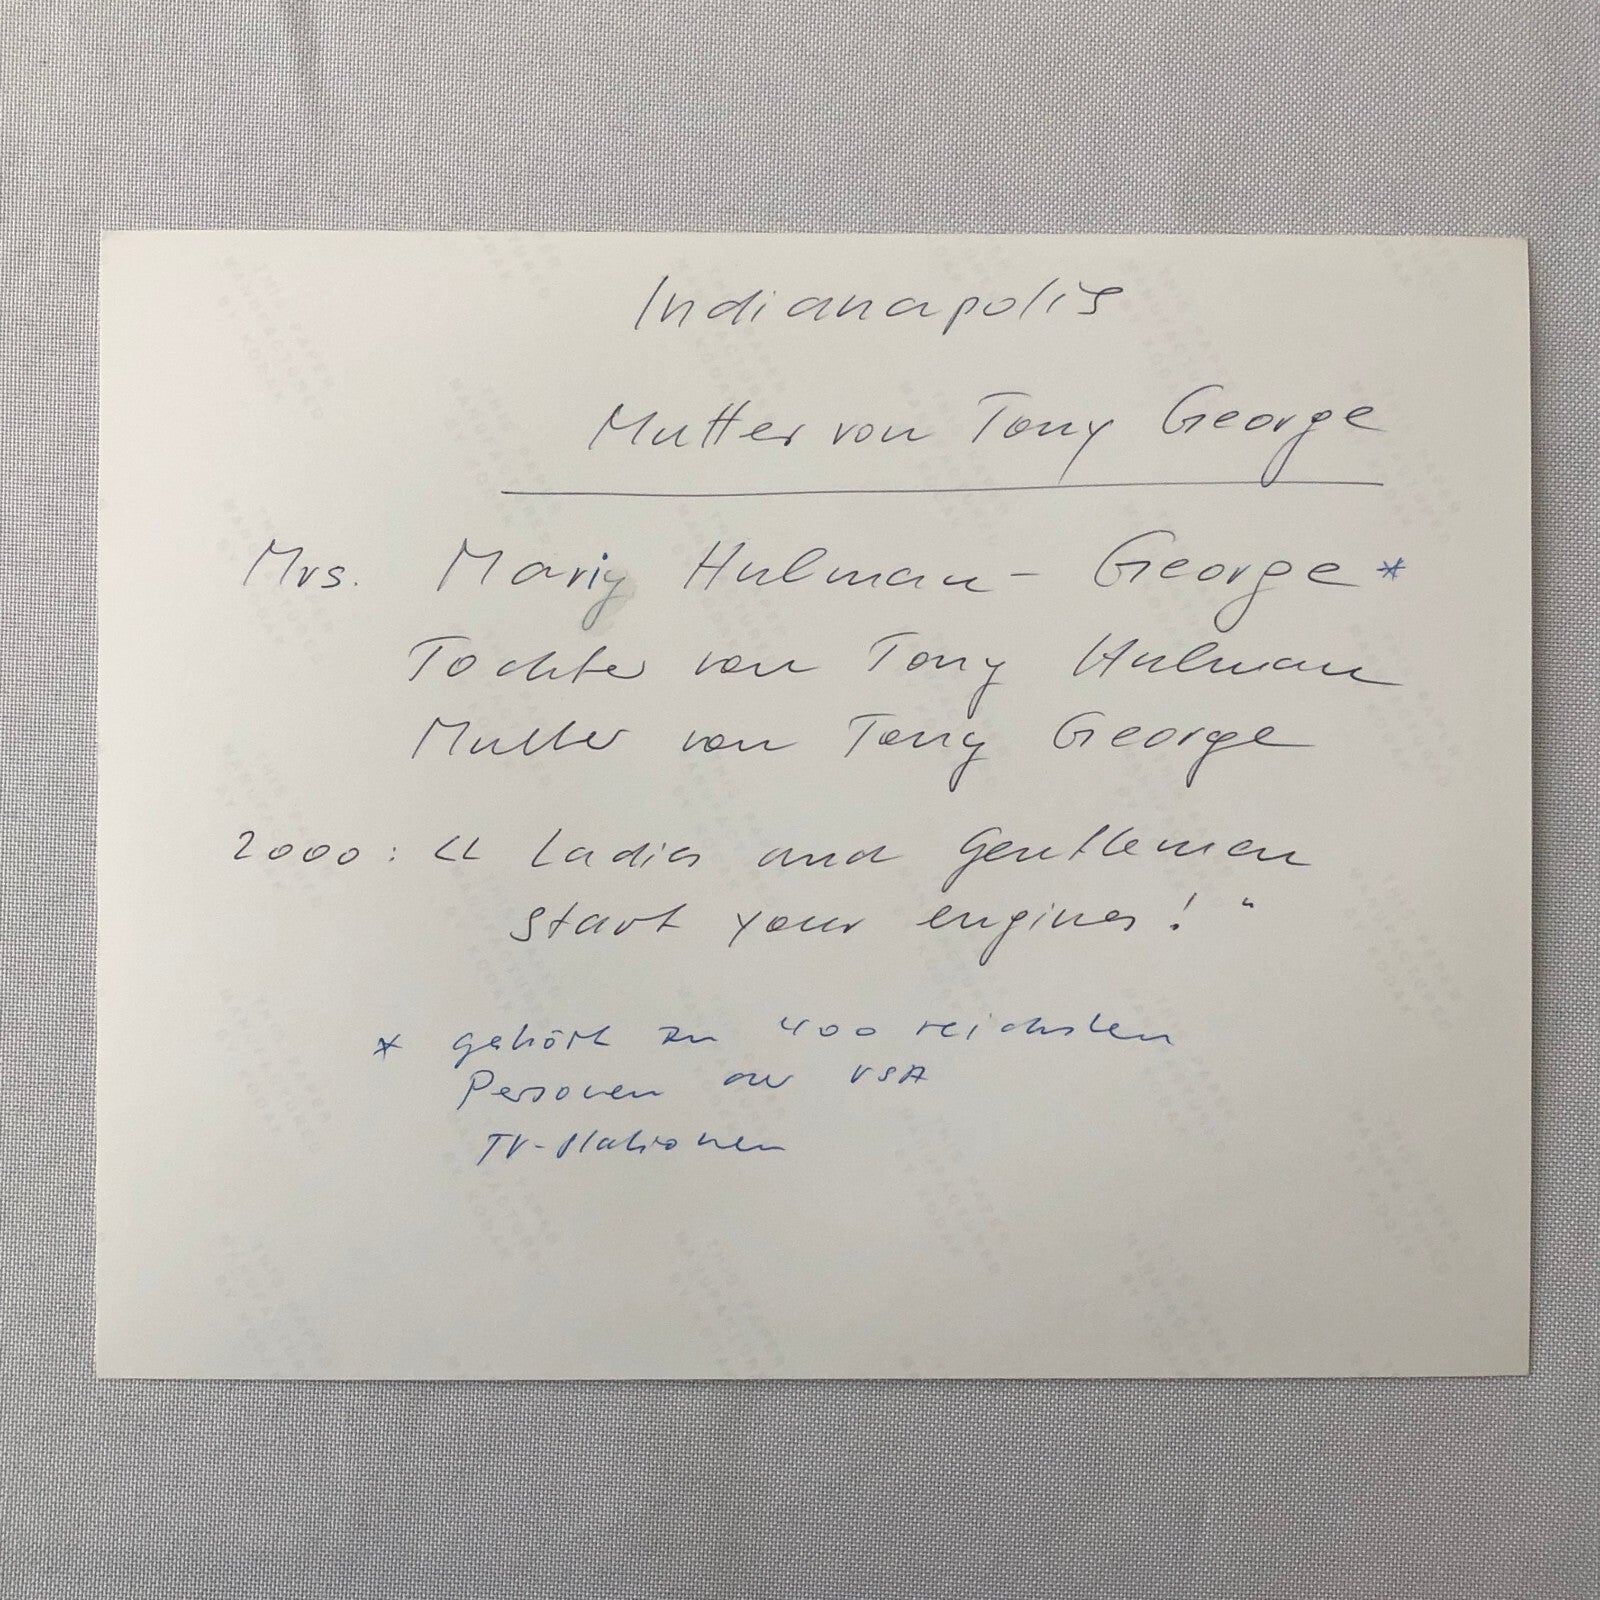 Indianapolis
Mutter von Tony George
Mrs. Mariy Hulman-George*
Tochter von Tony Hulman
Mutter von Tony George
2000: « Ladies and Gentlemen
start your engines! "
* gehört zu 400 reichsten
Personen der USA
TV-Stationen